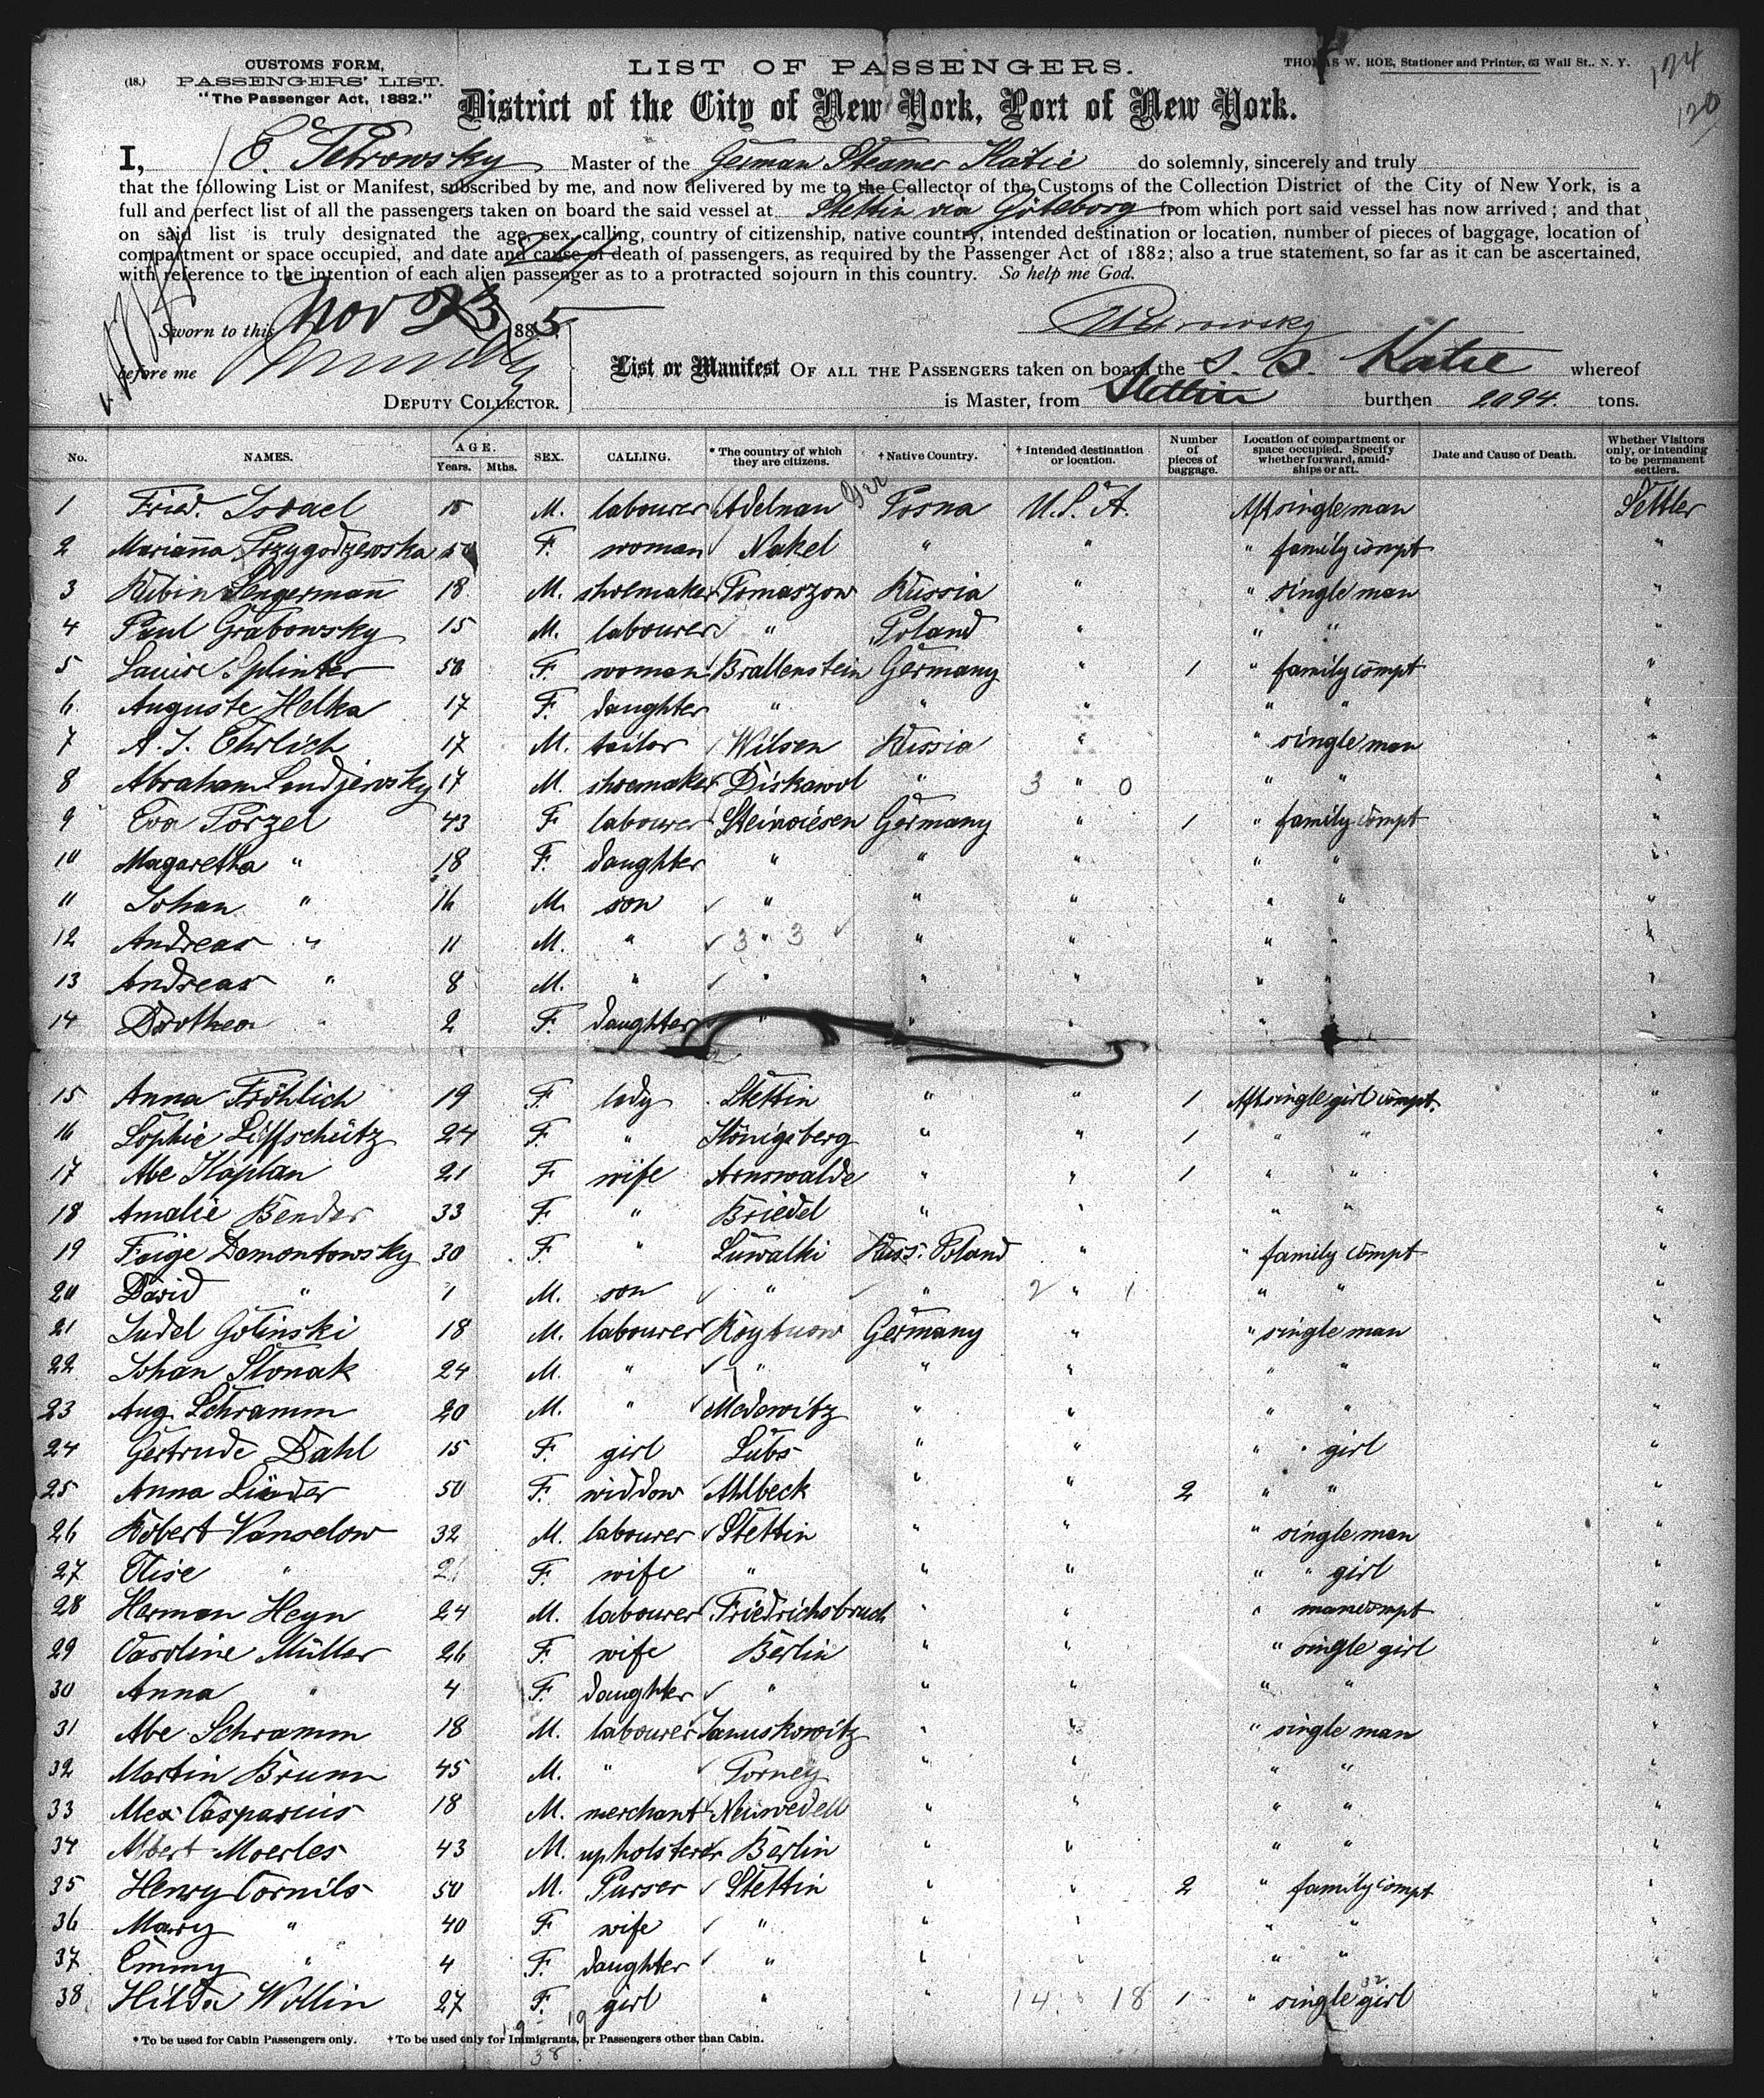 124
120
CUSTOMS FORM,
(18.) PASSENGERS' LIST.
"The Passenger Act, 1882."
LIST OF PASSENGERS.
THOMAS W. ROE, Stationer and Printer, 63 Wall St., N. Y.
District of the City of New York, Port of New York.
I, E. Petrowsky Master of the German Steamer Katie do solemnly, sincerely and truly
that the following List or Manifest, subscribed by me, and now delivered by me to the Collector of the Customs of the Collection District of the City of New York, is a
full and perfect list of all the passengers taken on board the said vessel at Stettin via Göteborg from which port said vessel has now arrived; and that
on said list is truly designated the age, sex, calling, country of citizenship, native country, intended destination or location, number of pieces of baggage, location of
compartment or space occupied, and date and cause of death of passengers, as required by the Passenger Act of 1882; also a true statement, so far as it can be ascertained,
with reference to the intention of each alien passenger as to a protracted sojourn in this country. So help me God.
Sworn to this Nov 23 1885
Petrowsky
before me
DEPUTY COLLECTOR.
List or Manifest OF ALL THE PASSENGERS taken on board the S. S. Katie whereof
is Master, from Stettin burthen 2094 tons.
No. NAMES. AGE. Years. Mths. SEX. CALLING. * The country of which they are citizens. † Native Country. † Intended destination or location. Number of pieces of baggage. Location of compartment or space occupied. Specify whether forward, amidships or aft. Date and Cause of Death. Whether Visitors only, or intending to be permanent settlers.
1 Fried. Israel 15 M. labourer Adelnau Ger Posna U.S.A. Aft single man Settler
2 Marianna Przygodzewska 50 F. woman Nakel " " " family compt "
3 Rubin Sengermann 18 M. shoemaker Tomaszow Russia " " single man "
4 Paul Grabowsky 15 M. labourer " Poland " " " "
5 Louise Splinter 50 F. woman Brallenstein Germany " 1 " family compt "
6 Auguste Helka 17 F. daughter " " " " " "
7 A. J. Ehrlich 17 M. tailor Wilsen Russia " " single man "
8 Abraham Sendzewsky 17 M. shoemaker Diskawol " 3 " 0 " " "
9 Eva Porzel 43 F. labourer Steinwiesen Germany " 1 " family compt "
10 Magaretha " 18 F. daughter " " " " " "
11 Johan " 16 M. son " " " " " "
12 Andreas " 11 M. " 3 " 3 " " " " "
13 Andreas " 8 M. " " " " " " "
14 Dorothea " 2 F. daughter " " " " "
15 Anna Fröhlich 19 F. lady Stettin " " 1 Aft single girl compt. "
16 Sophie Liffschütz 24 F. " Königsberg " " 1 " " "
17 Abe Kaplan 21 F. wife Arnswalde " " 1 " " "
18 Amalie Bender 33 F. " Briedel " " " " "
19 Feige Demontowsky 30 F. " Suwalki Russ. Poland " " family compt "
20 David " 1 M. son " " 2 " 1 " " "
21 Judel Golinski 18 M. labourer Koytnow Germany " " single man "
22 Johan Slonak 24 M. " " " " " " "
23 Aug. Schramm 20 M. " Medewitz " " " " "
24 Gertrude Dahl 15 F. girl Lübs " " " " girl "
25 Anna Linder 50 F. widdow Ahlbeck " " 2 " " "
26 Robert Vanselow 32 M. labourer Stettin " " " single man "
27 Elise " F. wife " " " " " girl "
28 Herman Heyn 24 M. labourer Friedrichsbruch " " " man compt "
29 Caroline Müller 26 F. wife Berlin " " " single girl "
30 Anna " 4 F. daughter " " " " " "
31 Abe Schramm 18 M. labourer Januskowitz " " " single man "
32 Martin Brumm 45 M. " Torney " " " " "
33 Alex Casparius 18 M. merchant Neuwedell " " " " "
34 Albert Moerles 43 M. upholsterer Berlin " " " " "
35 Henry Cornils 50 M. Purser Stettin " " 2 " family compt "
36 Mary " 40 F. wife " " " " " "
37 Emmy " 4 F. daughter " " " " " "
38 Hilda Wollin 27 F. girl " " 14 " 18 1 " single girl "
32
* To be used for Cabin Passengers only. † To be used only for Immigrants, or Passengers other than Cabin.
19 19
38